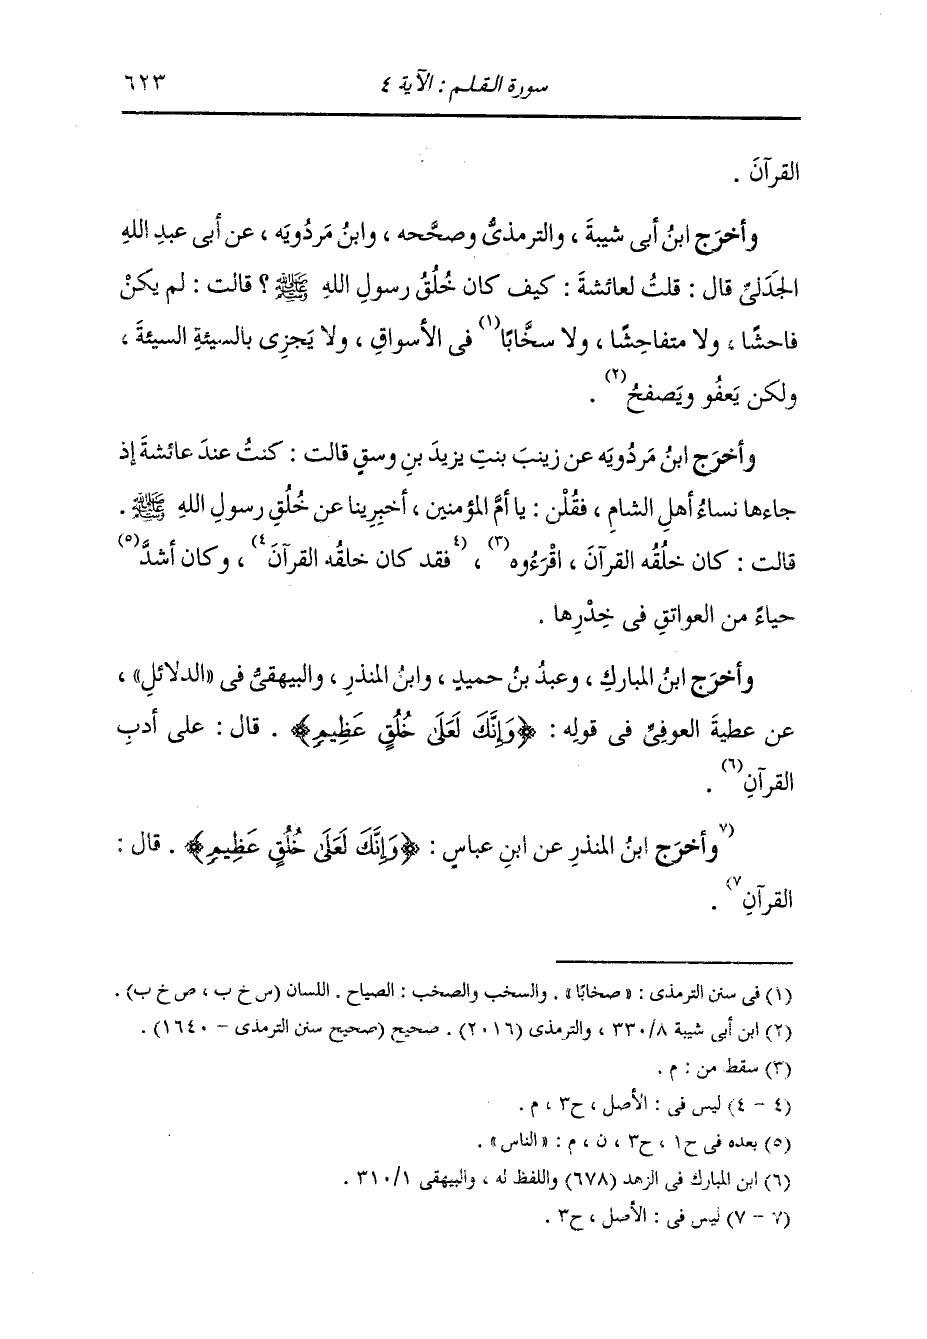 سورة القلم : الآية ٤ ٦٢٣
القرآنَ .
وأخرَج ابنُ أبى شيبةَ ، والترمذىُّ وصحَّحه ، وابنُ مَردُويَه ، عن أبى عبدِ اللهِ
الجَدَلىِّ قال : قلتُ لعائشةَ : كيف كان خُلُقُ رسولِ اللهِ ﷺ ؟ قالت : لم يكنْ
فاحشًا ، ولا متفاحِشًا ، ولا سخَّابًا(١) فى الأسواقِ ، ولا يَجزِى بالسيئةِ السيئةَ ،
ولكن يَعفُو ويَصفحُ(٢) .
وأخرَج ابنُ مَردُويَه عن زينبَ بنتِ يزيدَ بنِ وسقٍ قالت : كنتُ عندَ عائشةَ إذ
جاءها نساءُ أهلِ الشامِ ، فقُلْن : يا أمَّ المؤمنين ، أخبِرِينا عن خُلُقِ رسولِ اللهِ ﷺ .
قالت : كان خلُقُه القرآنَ ، اقْرَءُوه(٣) ، (٤ فقد كان خلقُه القرآنَ ٤) ، وكان أشدَّ(٥)
حياءً من العواتقِ فى خِدْرِها .
وأخرَج ابنُ المباركِ ، وعبدُ بنُ حميدٍ ، وابنُ المنذرِ ، والبيهقىُّ فى «الدلائلِ» ،
عن عطيةَ العوفِىِّ فى قولِه : ﴿وَإِنَّكَ لَعَلَىٰ خُلُقٍ عَظِيمٍ﴾ . قال : على أدبِ
القرآنِ(٦) .
(٧ وأخرَج ابنُ المنذرِ عن ابنِ عباسٍ : ﴿وَإِنَّكَ لَعَلَىٰ خُلُقٍ عَظِيمٍ﴾ . قال :
القرآنِ ٧) .
(١) فى سنن الترمذى : « صخابًا» . والسخب والصخب : الصياح . اللسان (س خ ب ، ص خ ب) .
(٢) ابن أبى شيبة ٣٣٠/٨ ، والترمذى (٢٠١٦) . صحيح (صحيح سنن الترمذى – ١٦٤٠) .
(٣) سقط من : م .
(٤ – ٤) ليس فى : الأصل ، ح٣ ، م .
(٥) بعده فى ح١ ، ح٣ ، ن ، م : « الناس» .
(٦) ابن المبارك فى الزهد (٦٧٨) واللفظ له ، والبيهقى ٣١٠/١ .
(٧ – ٧) ليس فى : الأصل ، ح٣ .